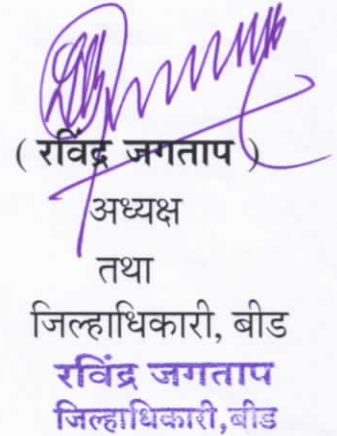 ( रविंद्र जगताप )
अध्यक्ष
तथा
जिल्हाधिकारी, बीड
रविंद्र जगताप
जिल्हाधिकारी,बीड